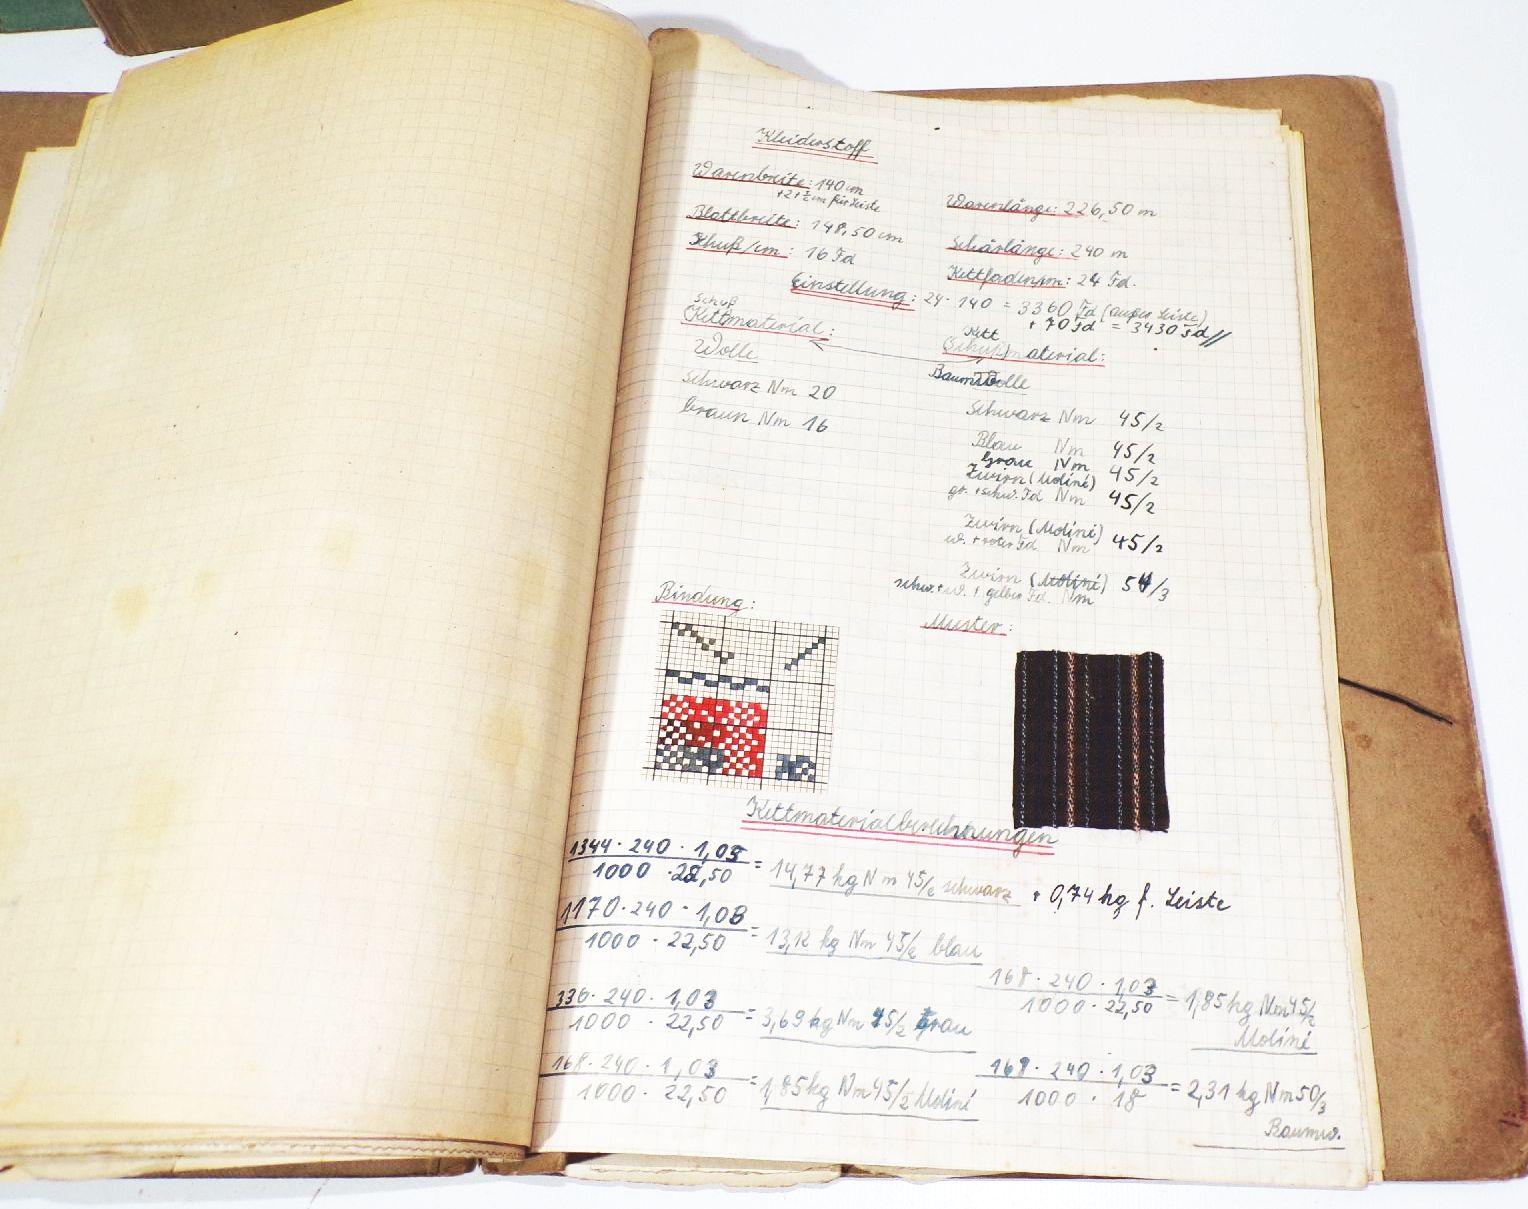 Kleiderstoff
Warenbreite: 140 cm
+2+½ cm für Leiste
Warenlänge: 226,50 m
Blattbreite: 148,50 cm
Schuß/cm: 16 Fd
Schärlänge: 240 m
Kettfaden: 24 Fd.
Einstellung: 24 · 140 = 3360 Fd (außer Leiste)
+ 70 Fd = 3430 Fd //
Schuß
(Kett)material:
Kett
(Schuß)material:
Wolle
Baumwolle
schwarz Nm 20
braun Nm 16
schwarz Nm 45/2
Blau Nm 45/2
Grau Nm 45/2
Zwirn (Moliné)
gr. + schw. Fd Nm 45/2
Zwirn (Moliné)
w. + roter Fd Nm 45/2
Zwirn (Moliné) 54/3
schw. + w. + gelber Fd. Nm
Bindung:
Muster:
Kettmaterialberechnungen
1344 · 240 · 1,03
1000 · 22,50
= 14,77 kg Nm 45/2 schwarz + 0,74 kg f. Leiste
1170 · 240 · 1,03
1000 · 22,50
= 13,12 kg Nm 45/2 blau
336 · 240 · 1,03
1000 · 22,50
= 3,69 kg Nm 45/2 Grau
168 · 240 · 1,03
1000 · 22,50
= 1,85 kg Nm 45/2
Moliné
168 · 240 · 1,03
1000 · 22,50
= 1,85 kg Nm 45/2 Moliné
168 · 240 · 1,03
1000 · 18
= 2,31 kg Nm 50/3
Baumw.